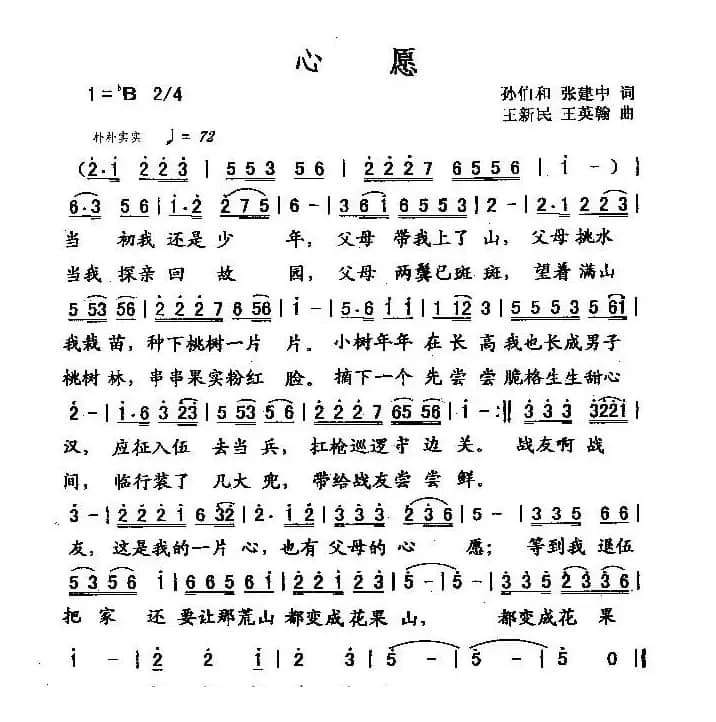 心 愿
1=♭B 2/4
孙伯和 张建中 词
王新民 王英翰 曲
朴朴实实 ♩=72
(2·1 2 2 3 | 5 5 3 5 6 | 2 2 2 7 6 5 5 6 | 1 - ) |
6·3 5 6 | 1·2 2 7 5 | 6 - | 3 6 1 6 5 5 3 | 2 - | 2·1 2 2 3 |
当 初我 还是 少 年, 父母 带我上了 山, 父母 挑水
当我 探亲 回 故 园, 父母 两鬓已斑 斑, 望着 满山
5 53 56 | 2 2 2 7 6 56 | 1 - | 5·6 1 1 | 1 12 3 | 5 5 5 3 5 61 |
我栽 苗, 种下桃树一片 片。 小树年年 在长 高 我也长成男子
桃树 林, 串串果实粉红 脸。 摘下一个 先尝 尝 脆格生生甜心
2 - | 1·6 3 23 | 5 53 5 6 | 2 2 2 7 65 56 | 1 - :|| 3 3 3 3221 |
汉, 应征入伍 去当 兵, 扛枪巡逻守 边 关。 战友啊 战
间, 临行装了 几大 兜, 带给战友尝 尝 鲜。
3 - | 2 2 2 1 6 32 | 2· 1 2 | 3 3 3 2 3 6 | 5 - | 5 - | 3 3 5 6 6 |
友, 这是我的一片 心, 也有 父母的 心 愿; 等到我 退伍
5 3 5 6 1 | 6 6 5 6 1 | 2 2 1 2 3 | 5 - | 5 - | 3 3 5 2 3 6 |
把 家 还 要让那荒山 都变成花果 山, 都变成花 果
1 - | 2 2 1 | 2 3 | 5 - | 5 - | 5 0 ||